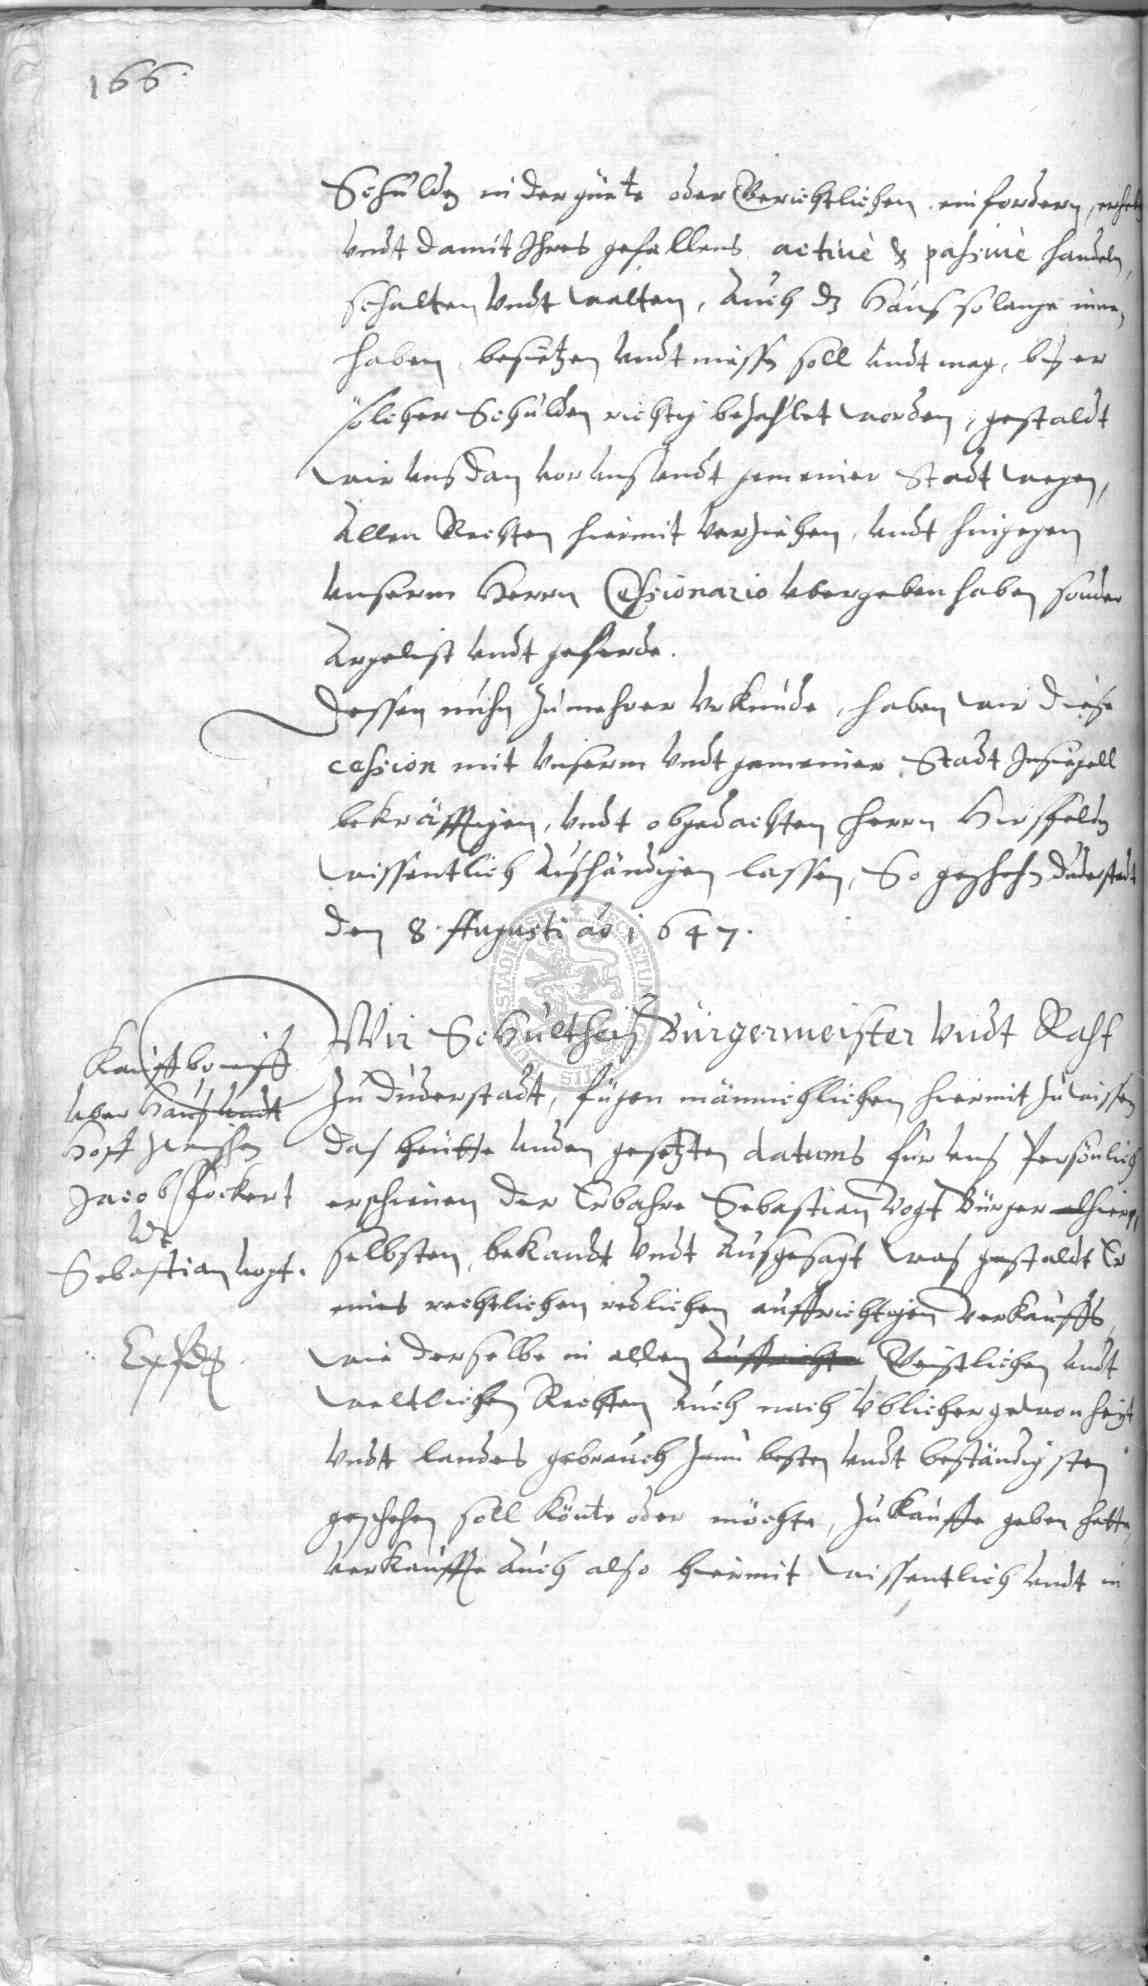 166.
Schulden in der güete oder Gerichtlichen einfordern, erheben
Vndt damit Ihres gefallens activè & passivè handeln,
schalten Vndt walten, Auch dz Hauß solange innen
haben, besietzen Vndt niessen soll Vndt mag, biß er
solcher Schulden richtig bezahlet worden, gestaldt
wir Vnß dan vor Vnß Vndt gemeiner Stadt wegen,
Allen Rechten hiermit Verziehen, Vndt hingegen
Vnserm Herrn Cessionario Vbergeben haben sonder
Argelist Vndt geferde.
Dessen nuhn Zu mehrer Vrkunde, haben wir diese
cession mit Vnserm Vndt gemeiner Stadt Insiegell
bekräfftigen, Vndt obgedachten Herrn
wissentlich Außhändigen lassen, So geschehen Duderstadt
den 8. Augusti ao 1647.
Kauffbrieff
Vber Hauß Vndt
Hoff zwischen
Jacob Fockert
Vdt
Sebastian Vogt.
Wir Schultheiß Bürgermeister Vndt Raht
Zu Duderstadt, fügen männichlichen hiermit Zu wissen
das heutte Vnden gesetzten datums für Vnß Persönlich
erschienen der Erbahre Sebastian Vogt Bürger alhier,
selbsten, bekandt Vndt Außgesagt was gestaldt Er
eines rechtlichen redlichen auffrichtigen Verkauffs,
wie derselbe in allen Auffrichte Geistlichen Vndt
weltlichen Rechten Auch nach Vblicher gewonheit
Vndt landes gebrauch Zum besten Vndt beständigsten
geschehen soll könte oder möchte, Zu Kauffe geben hette
verkauffe Auch also hiermit wissentlich Vndt in